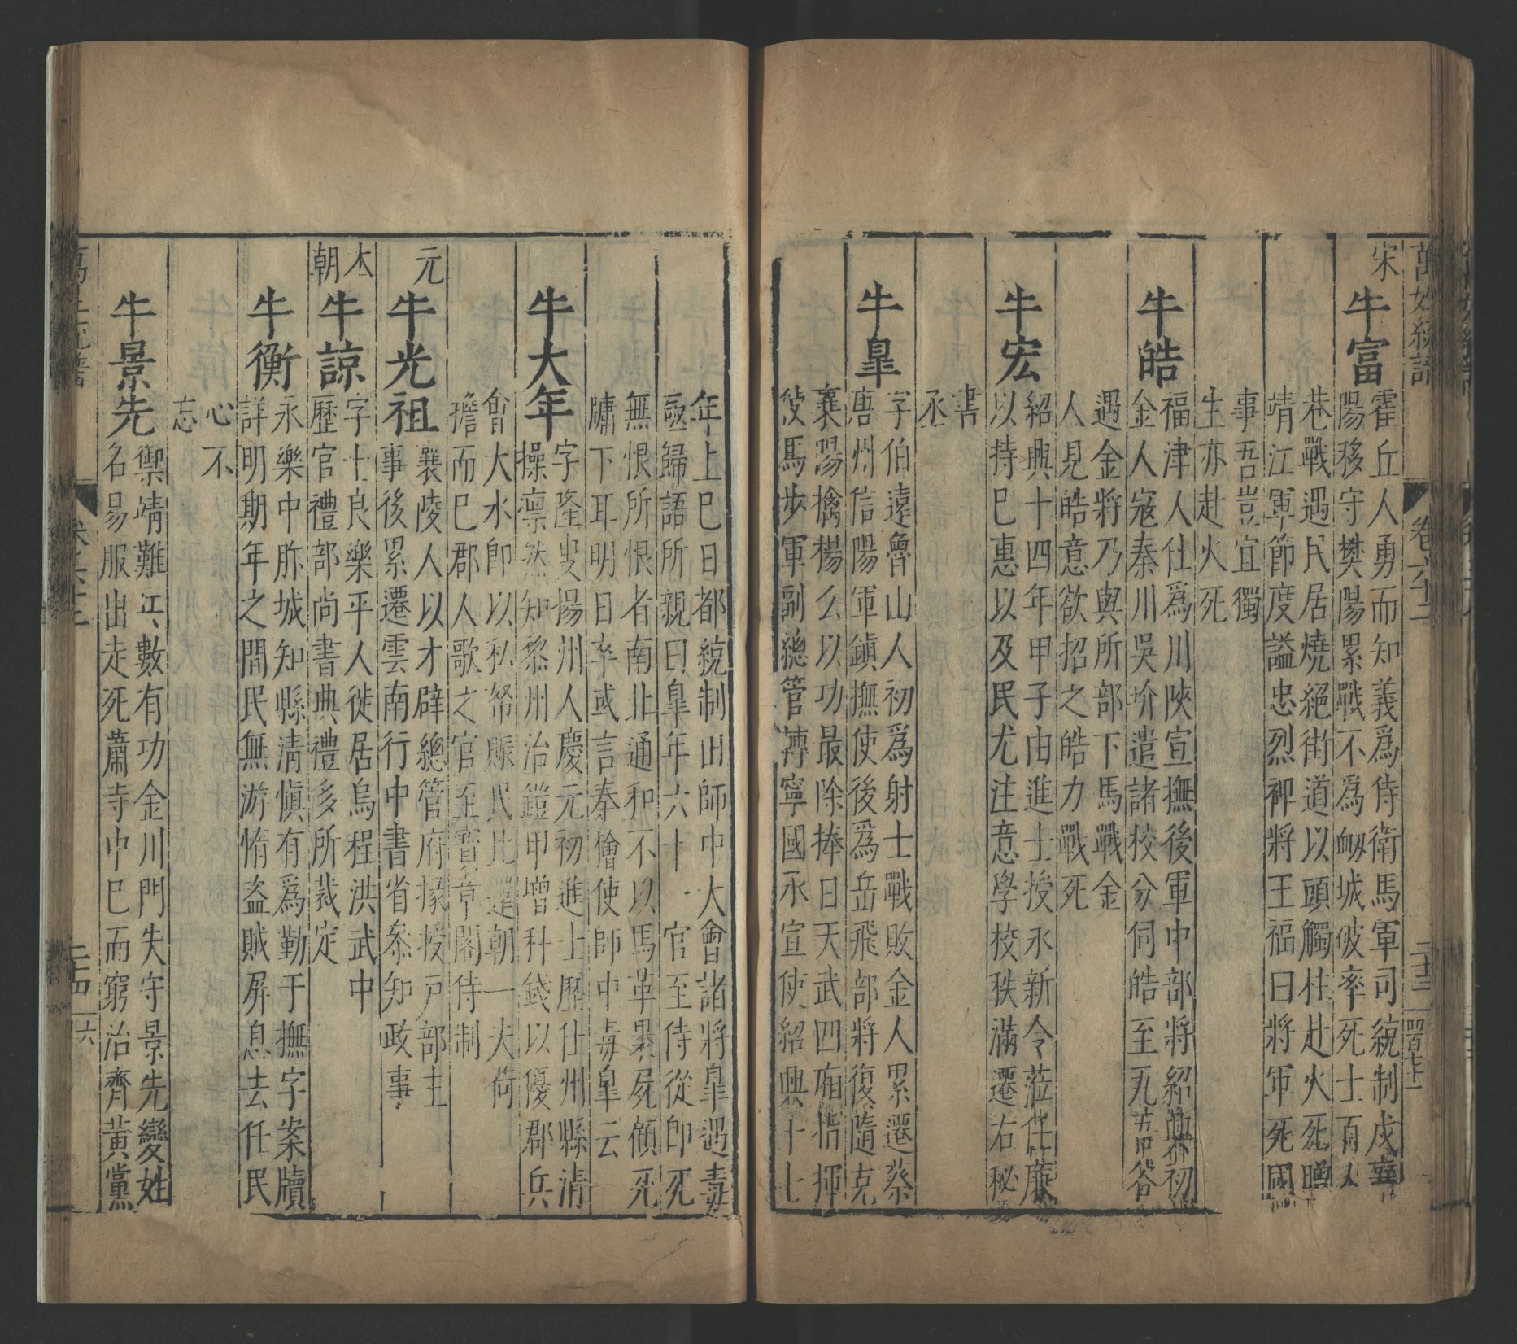 萬姓統譜 卷六十二
宋
牛富
霍丘人勇而知義爲侍衛馬軍司統制戍襄
陽移守樊陽累戰不爲衂城破率死士百人
巷戰遇民居燒絕街道以頭觸柱赴火死贈
靖江軍節度謚忠烈裨將王福曰將軍死國
事吾豈宜獨
生亦赴火死
牛皓
福津人仕爲川陜宣撫後軍中部將紹興初
金人寇秦川吳玠遣諸校分伺皓至瓦吾谷
遇金將乃與所部下馬戰金
人見皓意欲招之皓力戰死
牛宏
紹興十四年甲子由進士授永新令蒞任廉
以持己惠以及民尤注意學校秩滿遷右秘
書
丞
牛皐
字伯遠魯山人初爲射士戰敗金人累遷蔡
唐州信陽軍鎮撫使後爲岳飛部將復隨克
襄陽擒楊么以功最除捧日天武四廂指揮
使馬步軍副總管溥寧國永宣使紹興十七
年上巳日都統制田師中大會諸將皐遇毒
亟歸語所親曰皐年六十一官至侍從卽死
無恨所恨者南北通和不以馬革裹屍顧死
牗下耳明日卒或言秦檜使師中毒皐云
牛大年
字隆叟揚州人慶元初進士歷仕州縣清
操凛然知黎州治鎧甲增科錢以優郡兵
會大水卽以私帑賑民比還朝一夫荷
擔而巳郡人歌之官至寶章閣侍制
元
牛光祖
襄陵人以才辟總管府掾授戶部主
事後累遷雲南行中書省叅知政事
本
朝
牛諒
字士良樂平人徙居烏程洪武中
歷官禮部尚書典禮多所裁定
牛衡
永樂中胙城知縣清慎有爲勤于撫字案牘
詳明期年之間民無游惰盜賊屏息去任民
心不
忘
牛景先
禦靖難兵數有功金川門失守景先變姓
名易服出走死蕭寺中巳而窮治齊黃黨